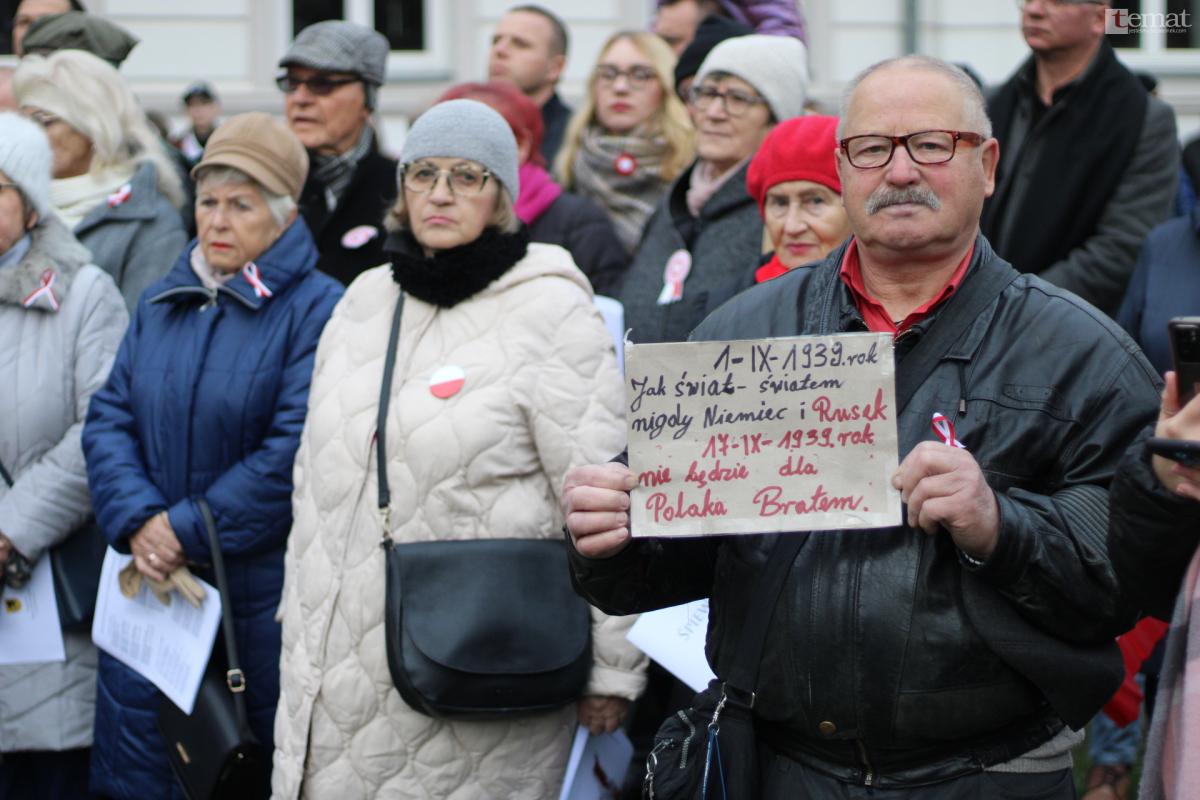 1-IX-1939.rok
Jak świat-światem
nigdy Niemiec i Rusek
17-IX-1939.rok
nie będzie dla
Polaka Bratem.
ŚPIEW
temat